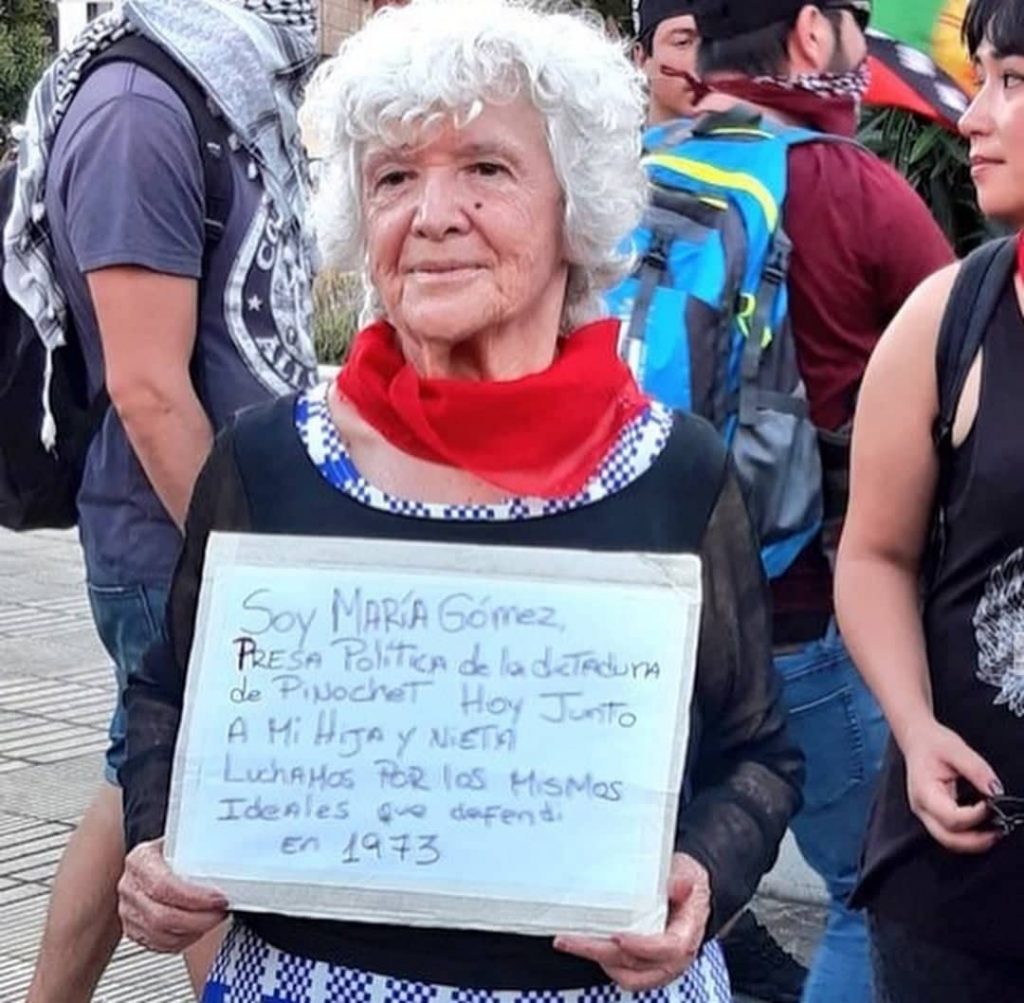 Soy MARÍA GÓMEZ,
PRESA POLÍTICA de la dictadura
de PINOCHET Hoy Junto
A Mi HIJA y NIETA
LUCHAMOS POR los MISMOS
Ideales que defendi
En 1973